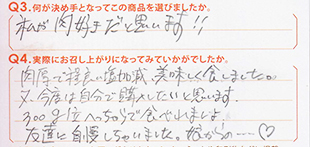 Q3.何が決め手となってこの商品を選びましたか。
私が肉好きだと思います!!
Q4.実際にお召し上がりになってみていかがでしたか。
肉厚で程良い塩加減、美味しく食しました。
又、今度は自分で購入したいと思います。
300g位へっちゃらで食べれましよ
友達に自慢しちゃいました。娘からの……♡